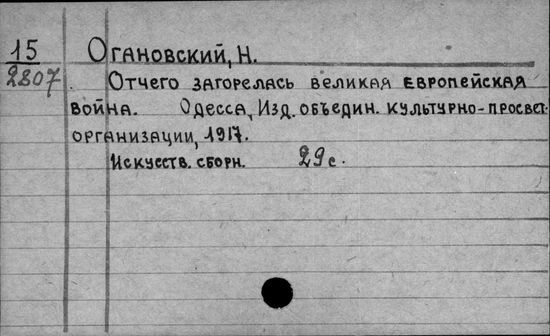 15
2807
Огановский, Н.
Отчего загорелась великая европейская
война. Одесса, Изд. объедин. культурно-просвет.
организации, 1917.
Искусств. сборн. 29 с.